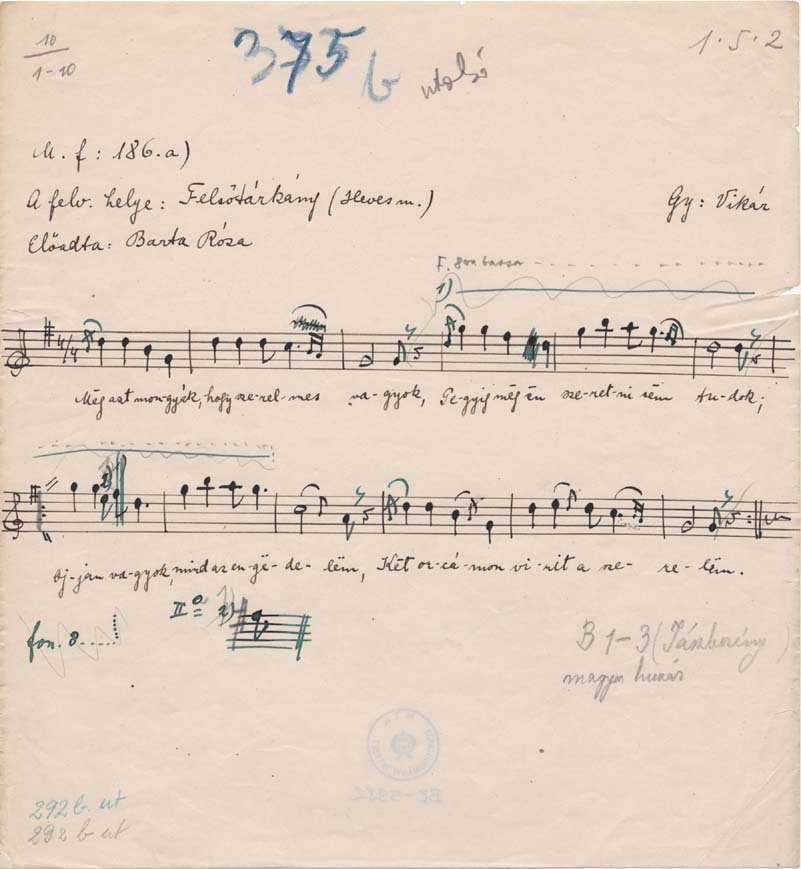 10
1-10
375 b
utolsó
1·5·2
M. f: 186.a)
A felv. helye: Felsőtárkány (Heves m.)
Gy: Vikár
Előadta: Barta Róza
F. 8va bassa
1)
4/4
Még azt mon-gyák, hogy sze-rel-mes va-gyok, Pe-gyig még én sze-ret-ni sëm tu-dok;
Aj-jan va-gyok, mind az en-gë-de-lëm, Két or-cá-mon vi-rít a sze-re-lëm.
fon. 8
II⁰ 2)
B 1-3 (Jászberény)
magyar huzás
292 b. ut
292 b ut